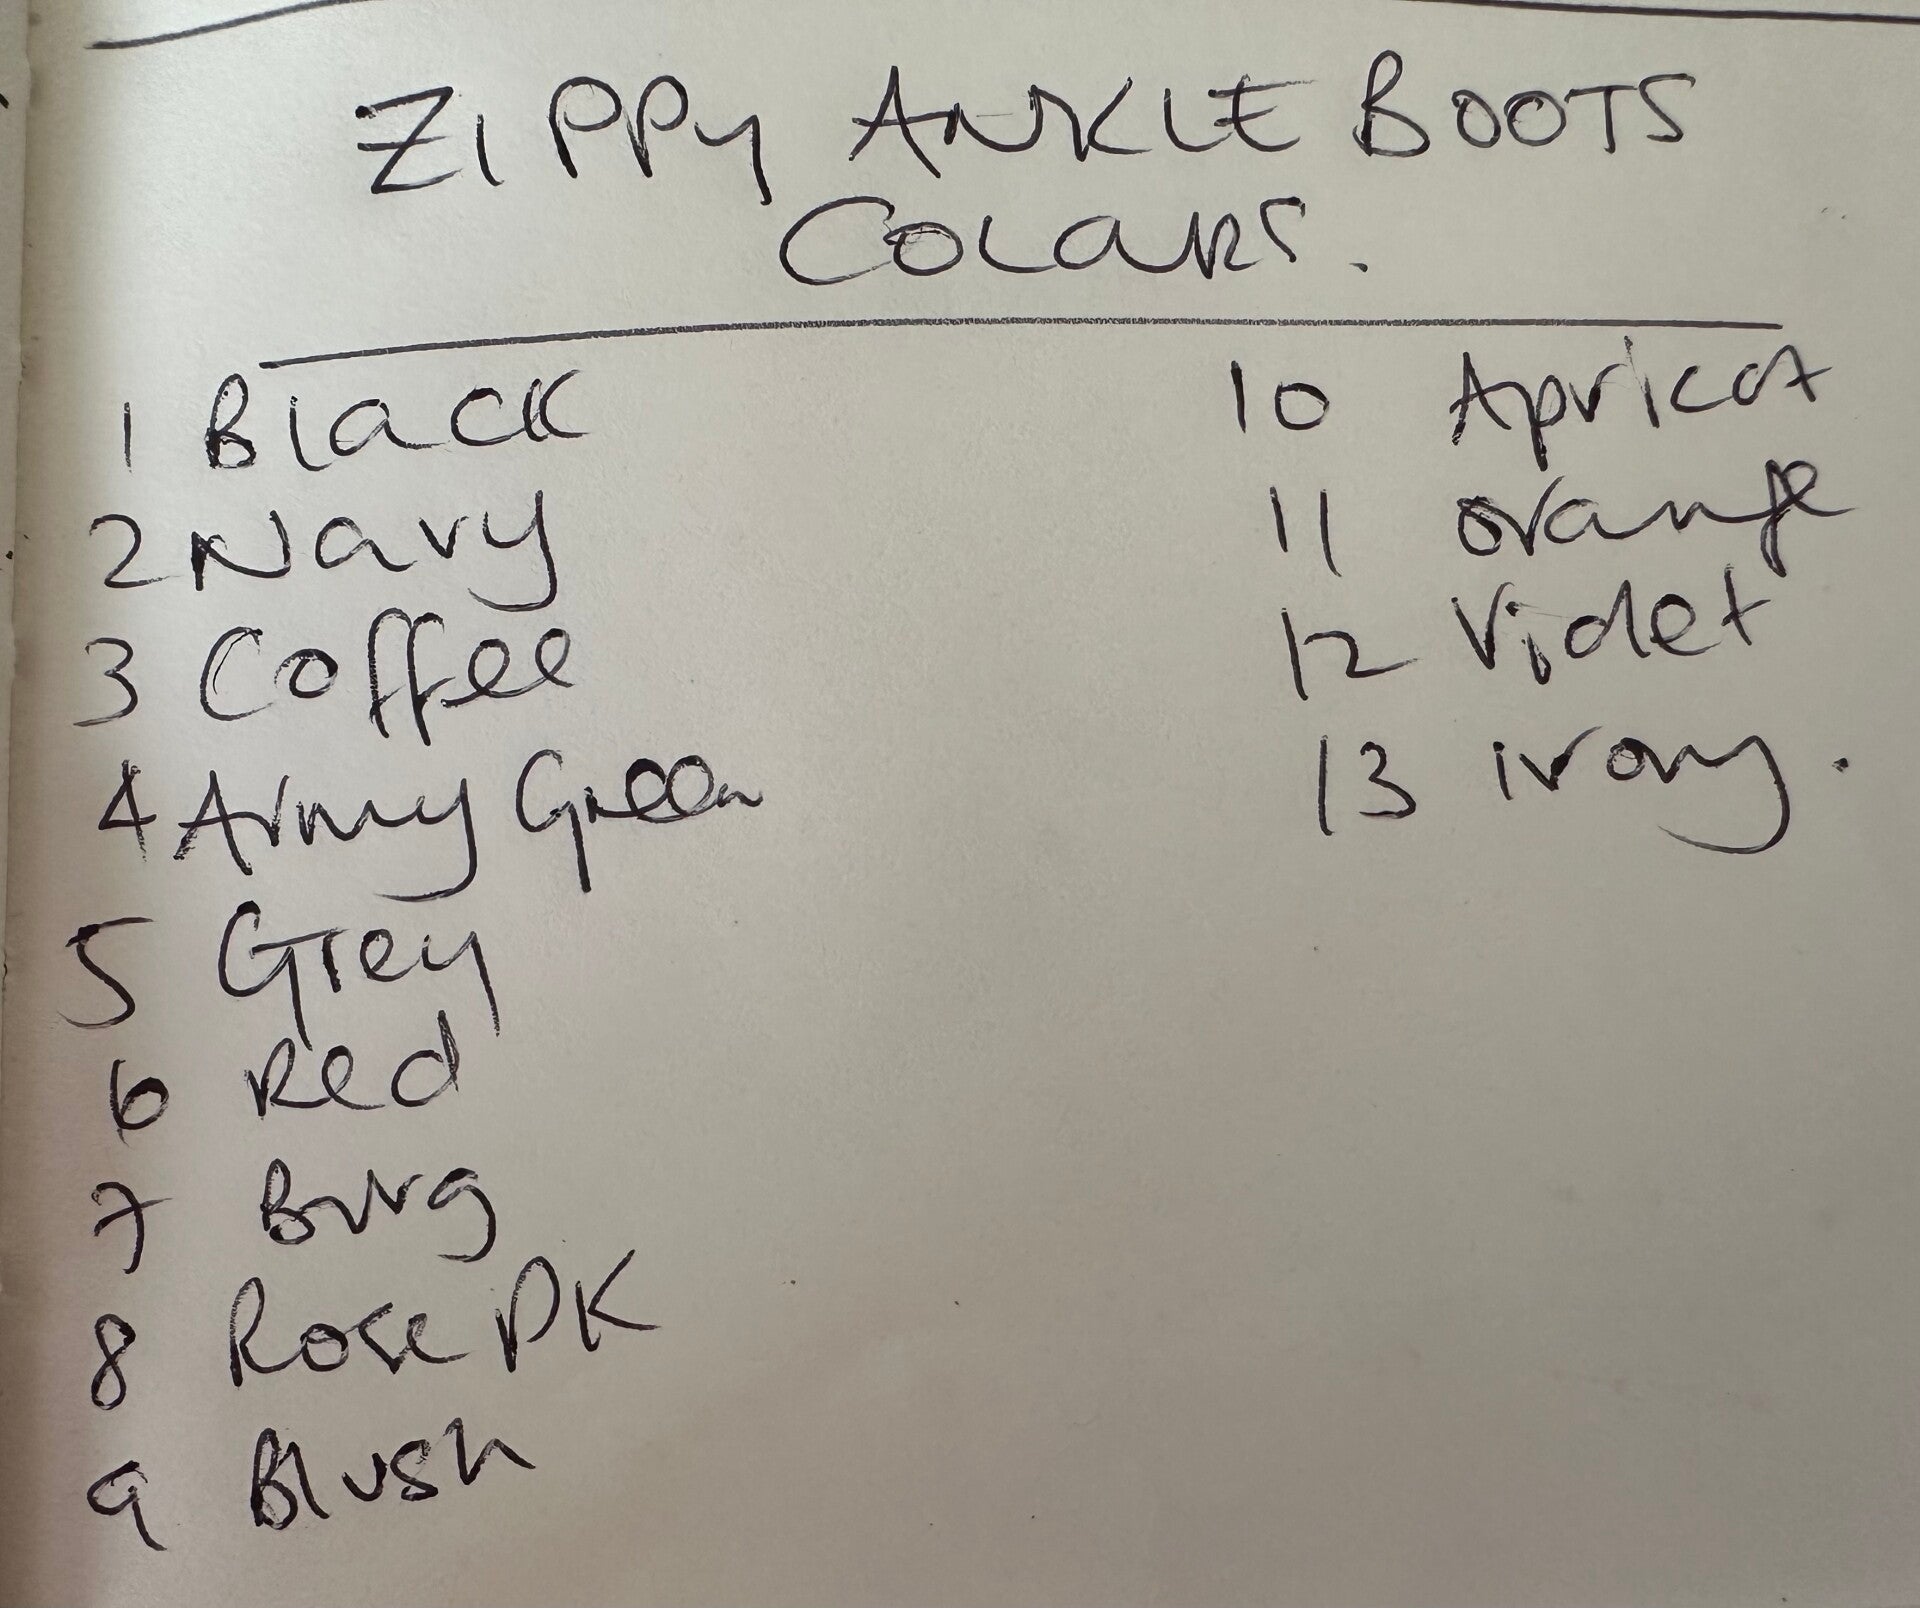 ZIPPY ANKLE BOOTS
COLOURS.
1 Black
2 Navy
3 Coffee
4 Army Green
5 Grey
6 Red
7 Burg
8 Rose PK
9 Blush
10 Apricot
11 Orange
12 Violet
13 ivory.